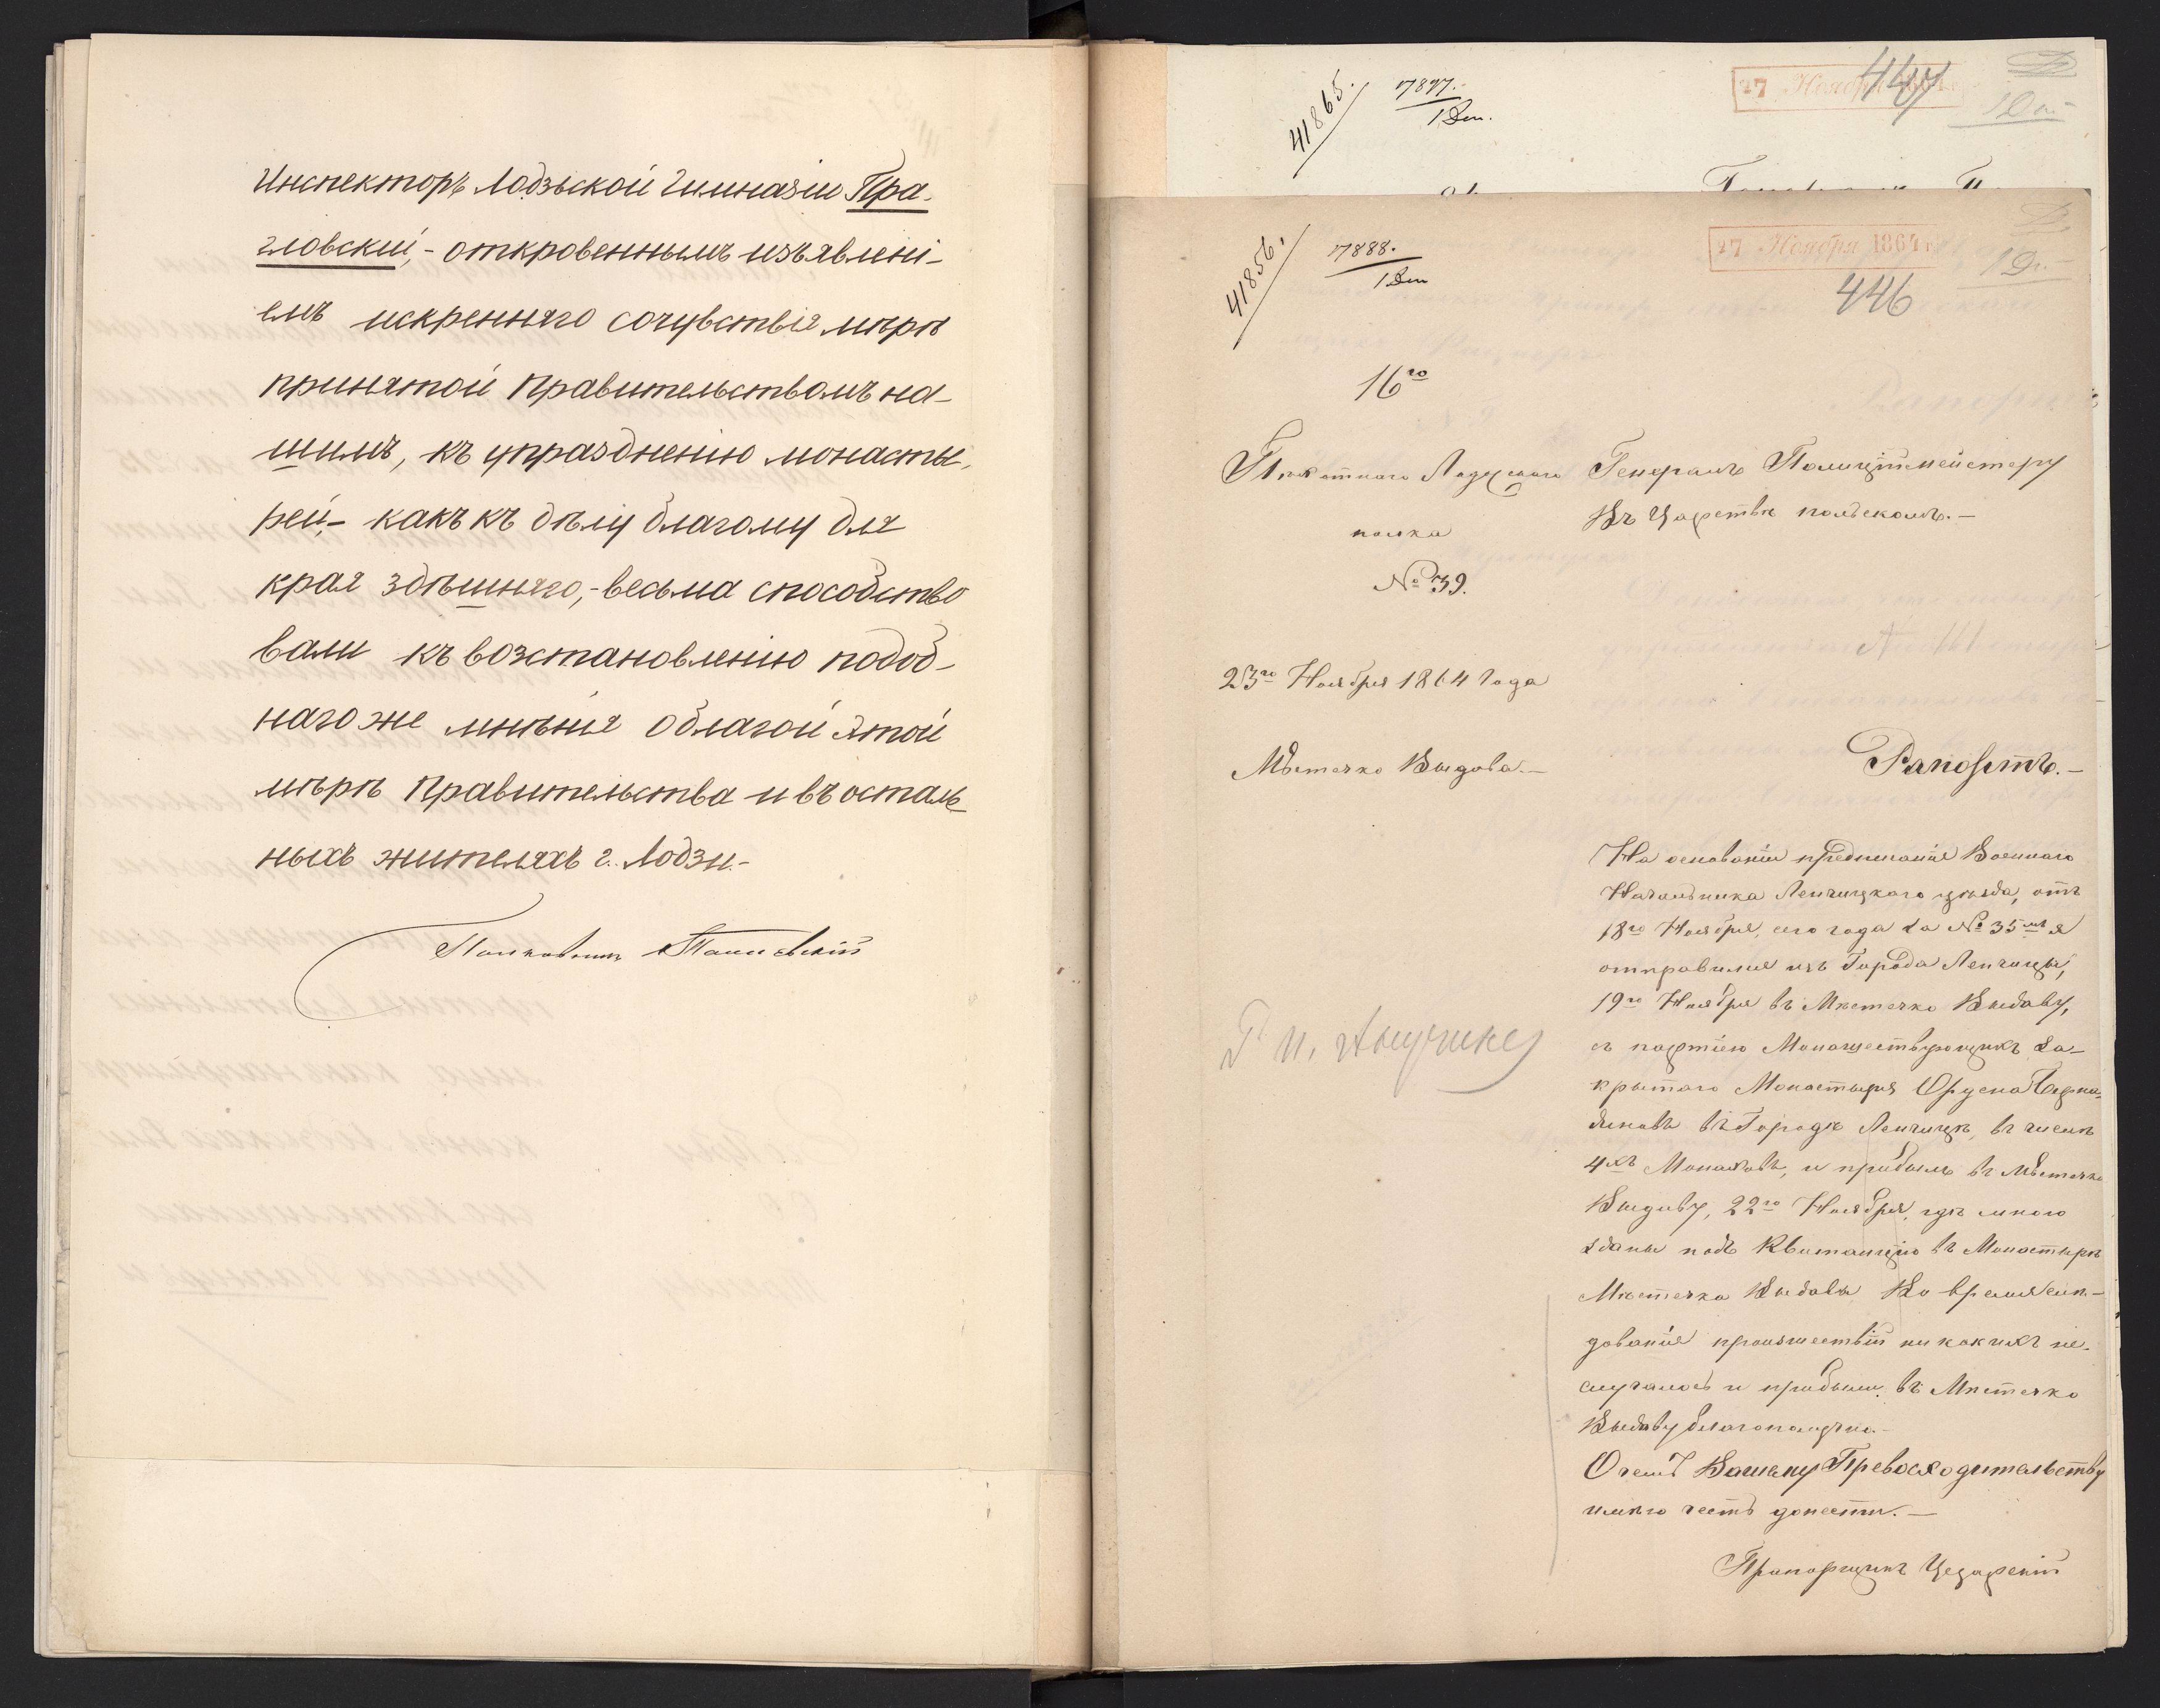 Инспекторъ Лодзьской Гимназіи Пра-
гловскій, - откровеннымъ изъявлені-
емъ искренняго сочувствія мѣрѣ
принятой Правительствомъ на-
шимъ, къ упраздненію монасты-
рей, - какъ къ дѣлу благому для
края здѣшняго, - весьма способство
вали къ возстановленію подоб-
наго же мнѣнія о благой этой
мѣрѣ Правительства и въ осталь-
ныхъ жителяхъ г. Лодзи. -
Полковникъ
41865.
7897.
1 Дек.
27 Ноября 1864
447
41856.
7888.
1 Дек
27 Ноября 1864 г.
446
16го
Пѣхотнаго Ладужскаго
полка
№ 39.
23го Ноября 1864 Года
Мѣстечко Видава. -
Генералъ Полиціймейстеру
Въ Царствѣ польскомъ. -
Рапортъ. -
На основаніи предписанія Военнаго
Начальника Ленчицкаго уѣзда, отъ
18го Ноября, сего года за № 35мъ я
отправился изъ Города Ленчицы,
19го Ноября въ Мѣстечко Видаву,
съ партіею Монашествующихъ За-
крытаго Монастыря Ордена Берна-
диновъ въ Городѣ Ленчицѣ, въ числѣ
4хъ Монаховъ, и прибылъ въ Мѣстечко
Видаву, 22го Ноября, гдѣ мною
зданы подъ Квитанцію въ Монастырь
Мѣстечка Видавы Во время слѣ-
дованія происшествій никакихъ не-
случалось и прибыли въ Мѣстечко
Видаву благополучно. -
О чемъ Вашему Превосходительству
имѣю честь донести. -
Прапорщикъ